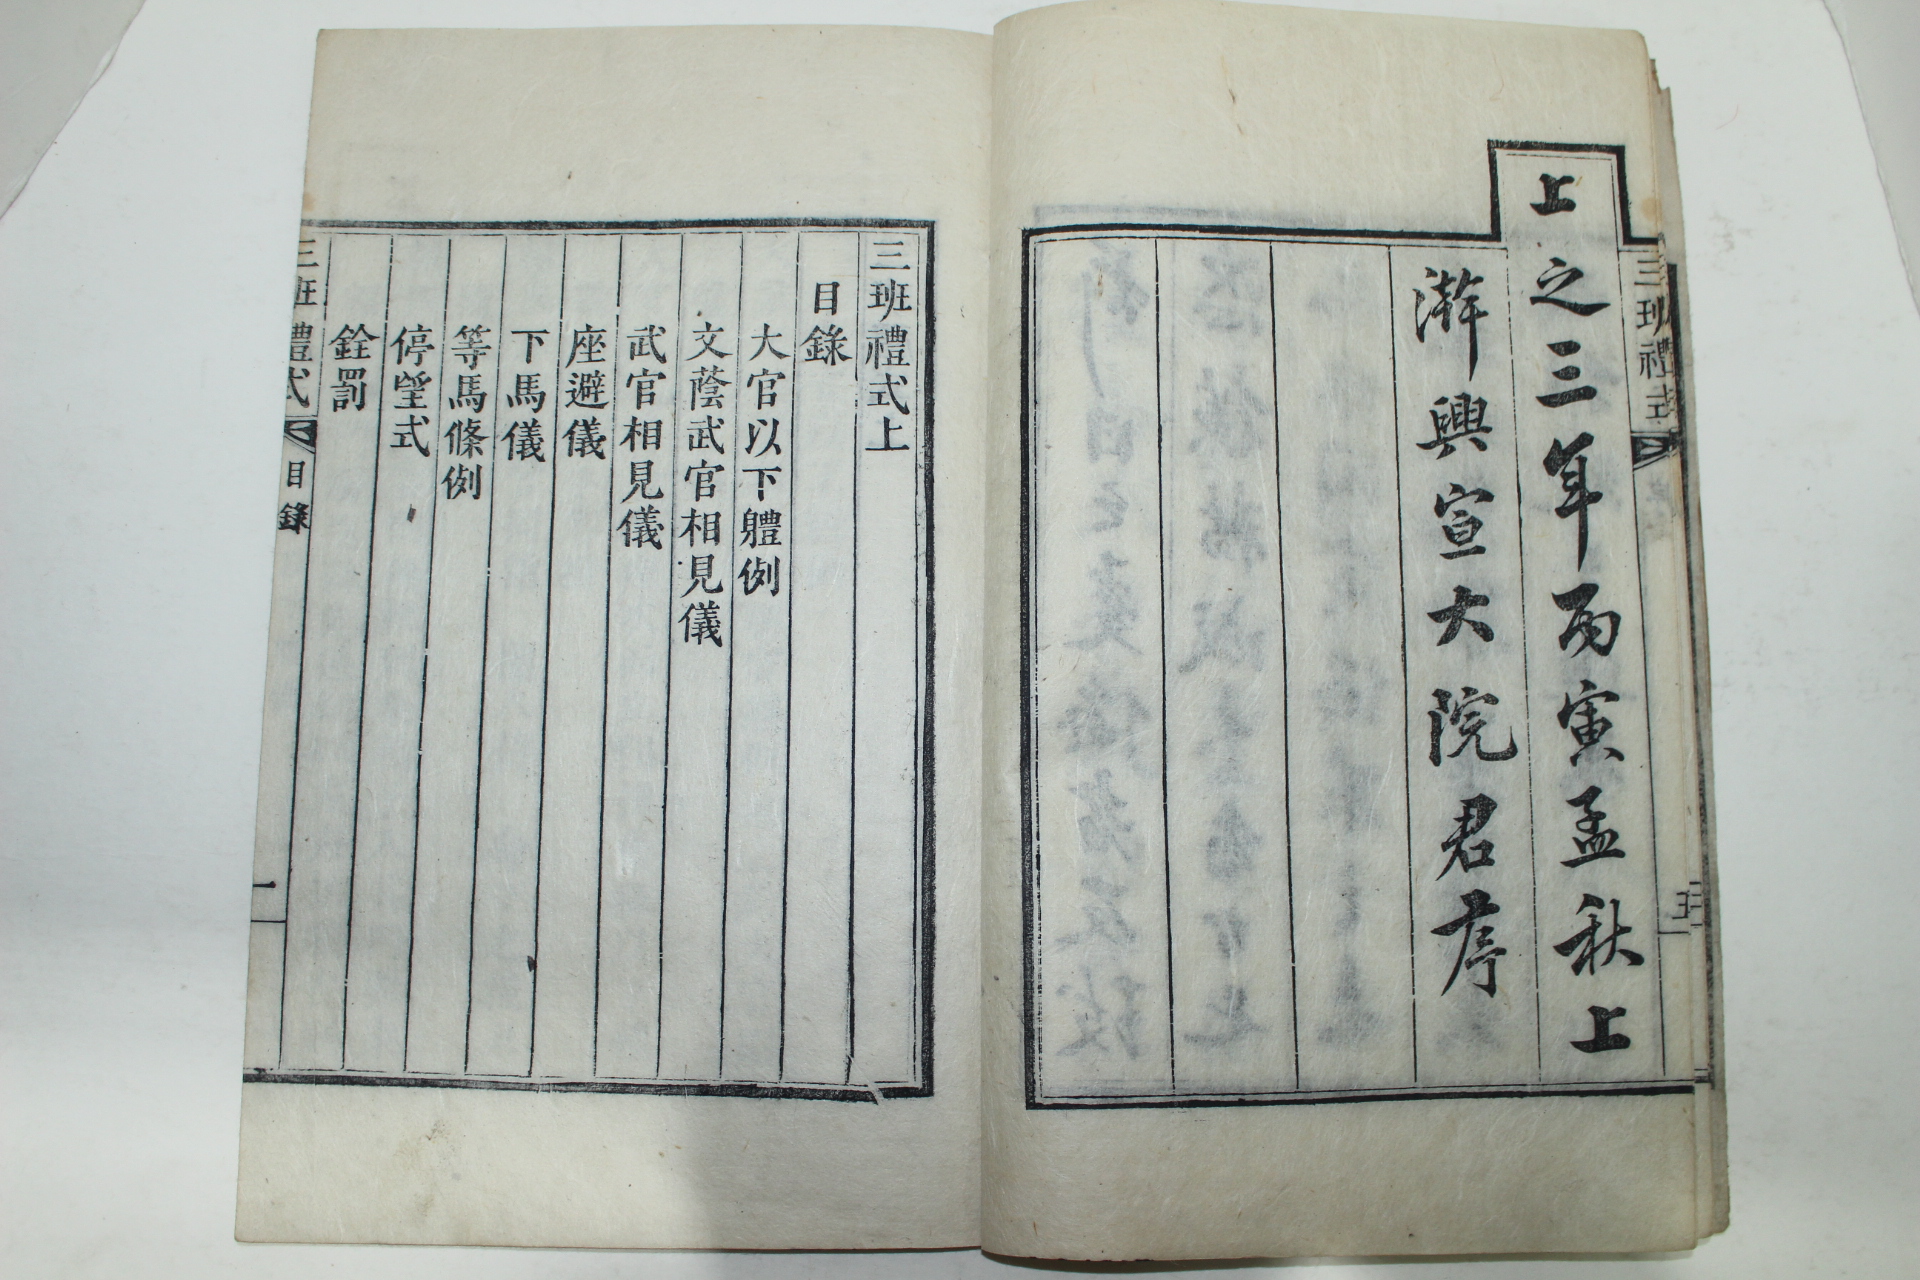 三班禮式
上之三年丙寅孟秋上
澣興宣大院君序
三班禮式上
目錄
大官以下體例
文蔭武官相見儀
武官相見儀
座避儀
下馬儀
等馬條例
停望式
銓罰
三班禮式
目錄
一